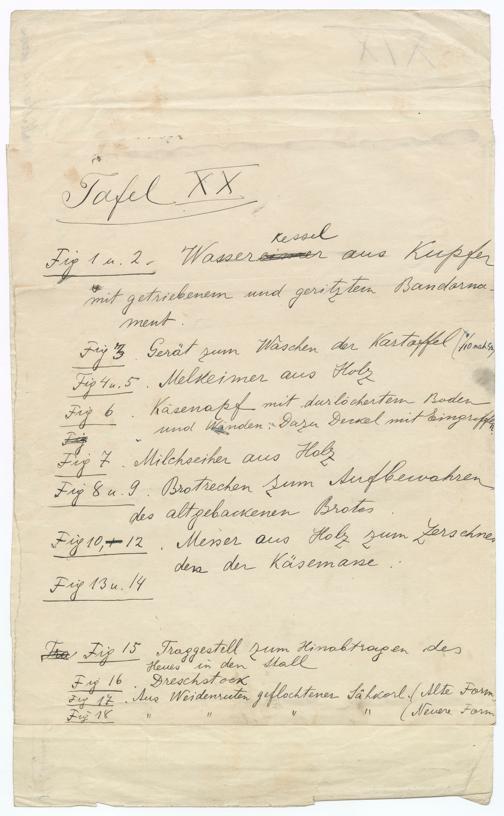 XIX
Tafel XX
kessel
Fig 1 u. 2. Wassereimer aus Kupfer
mit getriebenem und geritztem Bandorna-
ment.
Fig 3. Gerät zum Waschen der Kartoffel
Fig 4 u. 5. Melkeimer aus Holz
Fig 6. Käsenapf mit durlöchertem Boden
Fig " und Wänden. Dazu Deckel mit
Fig 7. Milchseiher aus Holz
Fig 8 u. 9. Brotrechen zum Aufbewahren
des altgebackenen Brotes.
Fig 10, + 12. Messer aus Holz zum Zerschnei
den der Käsemasse.
Fig 13 u. 14
Tra Fig 15 Traggestell zum Hinabtragen des
Heues in den Stall
Fig 16 Dreschstock
Fig 17. Aus Weidenruten geflochtener Sähkorb. (Alte Form
Fig 18 " " " " (Neuere Form